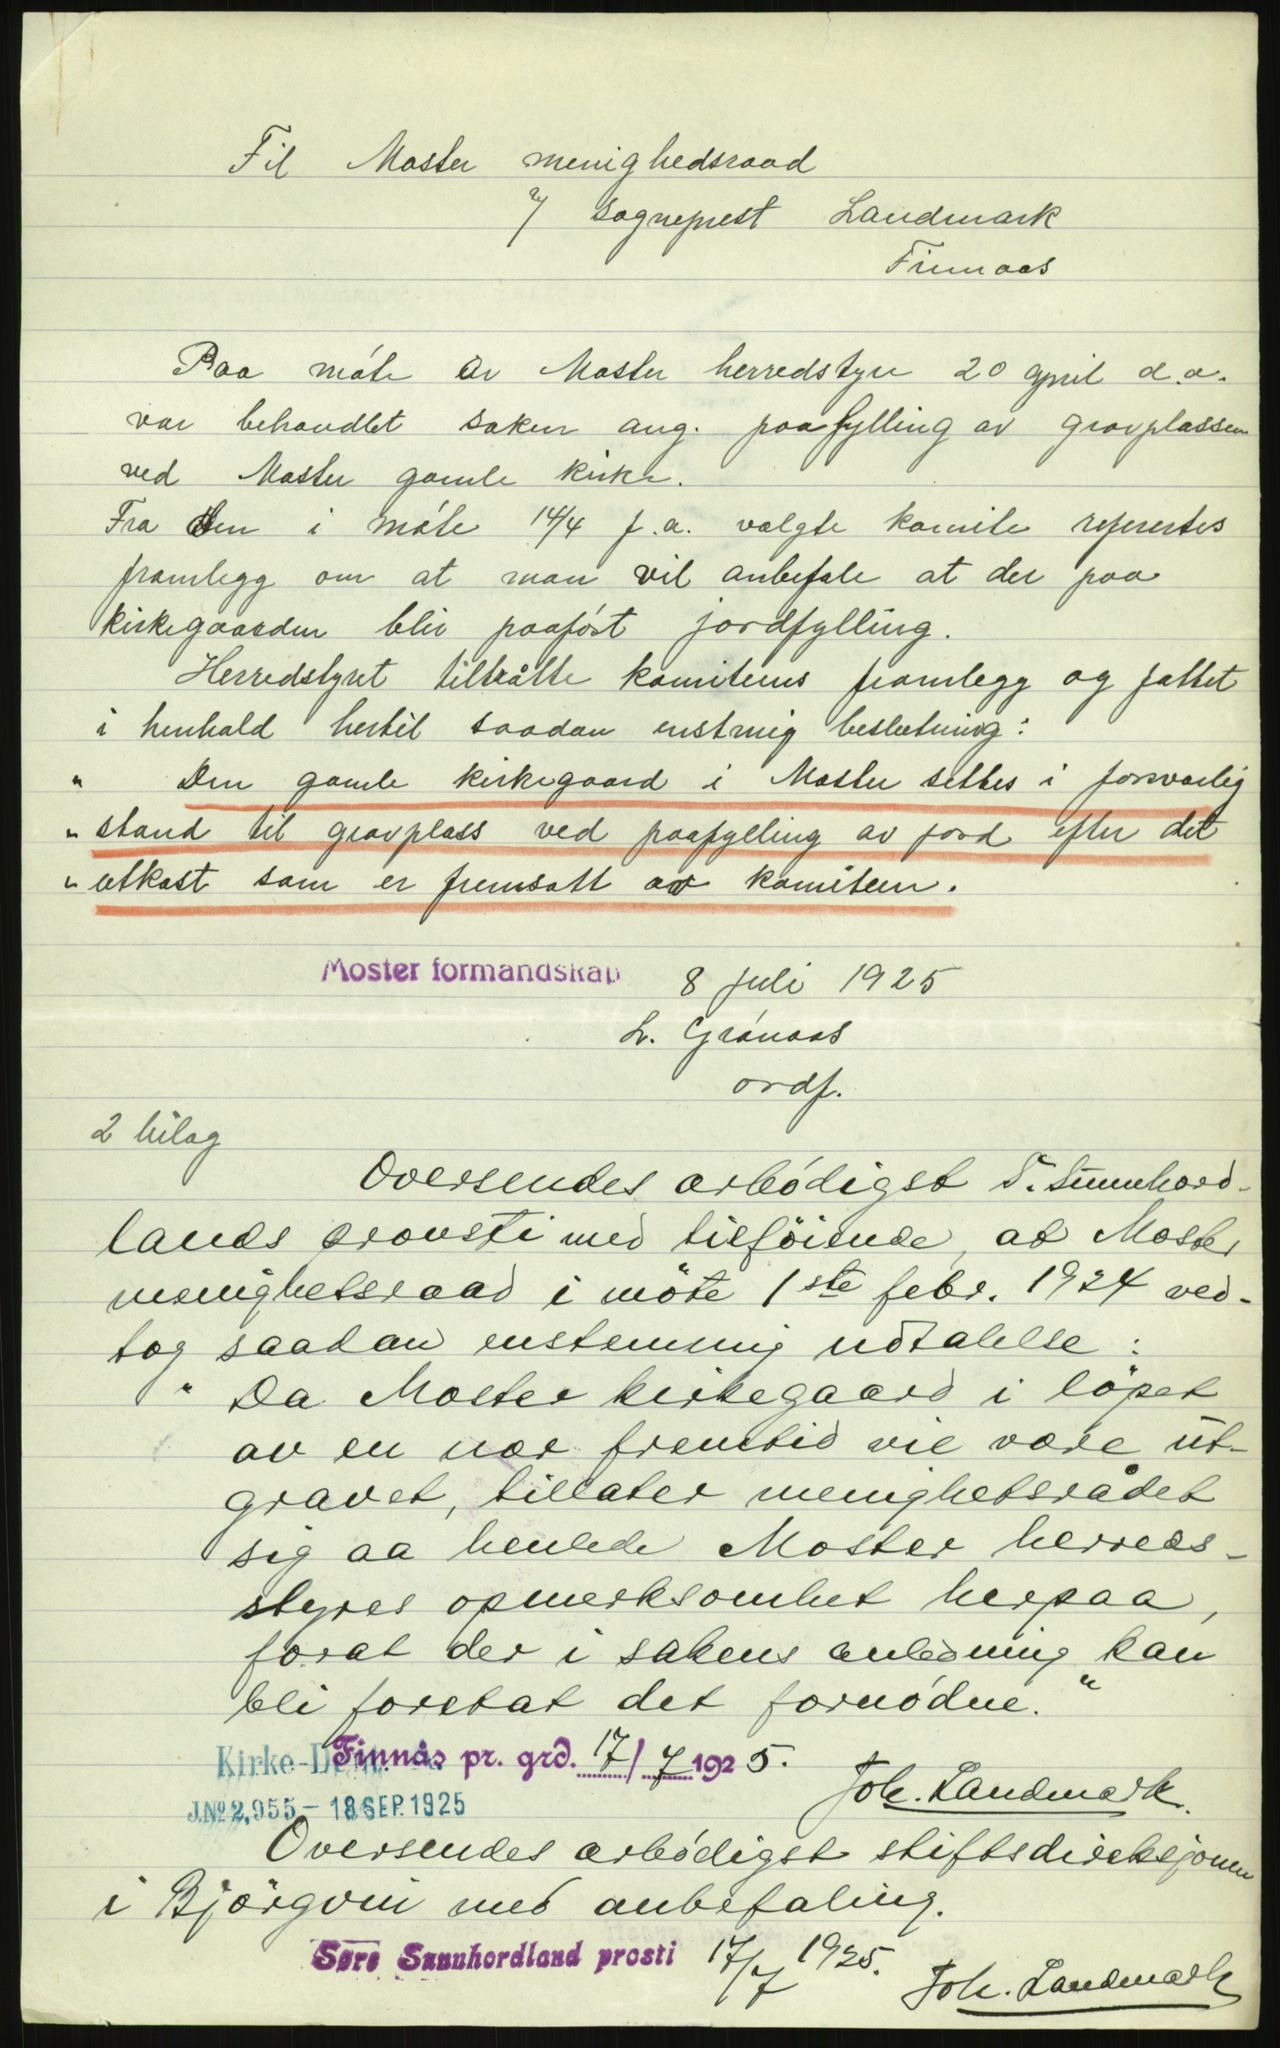 Til Moster menighedsraad
v/ sogneprest Landmark
Finnaas
Paa móte av Moster herredstyre 20 april d.a.
var behandlet saken ang. paafylling av gravplassen
ved Moster gamle kirke.
Fra den i móte 14/4 f.a. valgte komite refertes
framlegg om at man vil anbefale at der paa
kirkegaarden blir paafórt jordfylling.
Herredstyret tiltråtte komiteens framlegg og fattet
i henhold hertil saadan enstmig beslutning:
" Den gamle kirkegaard i Moster settes i forsvarlig
" stand til gravplass ved paafylling av jord efter det
" utkast som er fremsatt av komiteen.
Moster formandskap 8 juli 1925
L. Grónaas
ordf.
2 bilag
Oversendes ærbódigst S. Sunnhord-
lands prousti med tilföiende, at Moster
menighetsraad i möte 1ste febr. 1924 ved-
tog saadan enstemmig udtalelse:
" Da Moster kirkegaard i löpet
av en nær fremtid vil være ut-
gravet, tillater menighetsrådet
sig aa henlede Moster herreds-
styres opmerksomhet herpaa,
forat der i sakens anledning kan
bli foretat det fornódne."
Finnås pr. grd. 17/7 1925.
Kirke-D
Joh. Landmark.
J.No 2,955 - 18 SEP. 1925
Oversendes ærbódigst stiftsdireksjonen
i Björgvin med anbefaling.
Søre Sunnhordland prosti 17/7 1925.
Joh. Landmark